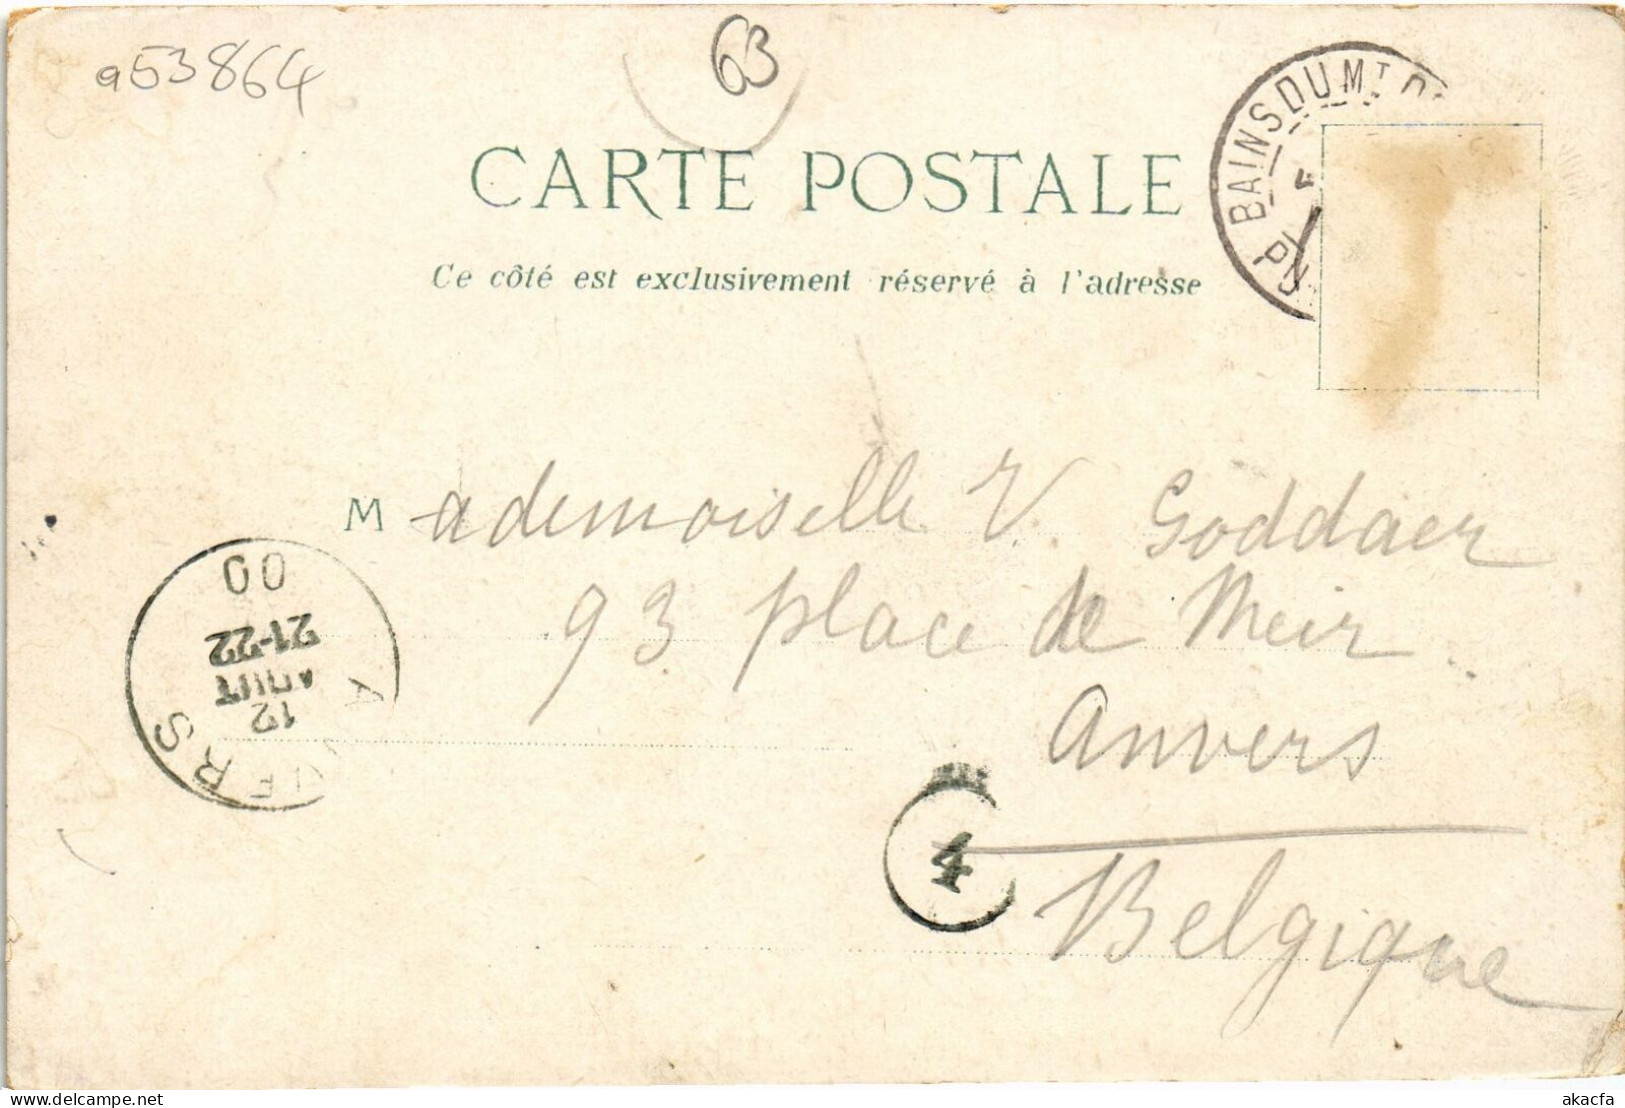 a53864
63
BAINS DU MT
CARTE POSTALE
Ce côté est exclusivement réservé à l'adresse
Mademoiselle V. Goddaer
93 place de Meir
Anvers
Belgique
4
ANVERS
12
AOUT
21-22
00
akacfa
delcampe.net